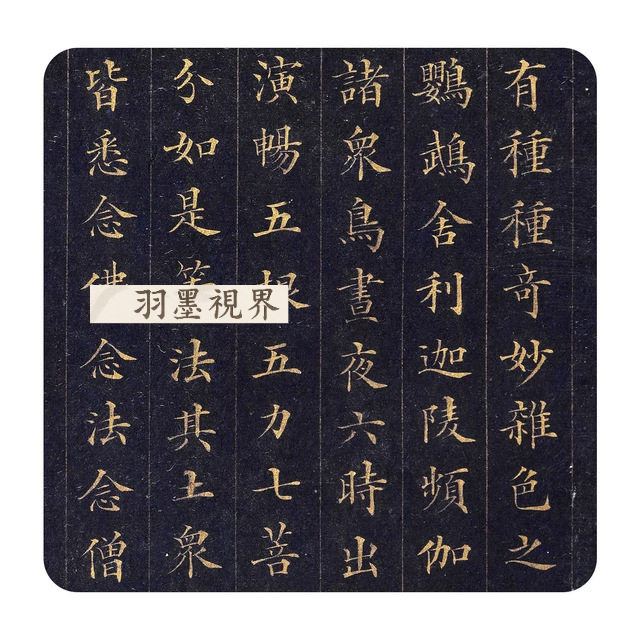 有種種奇妙雜色之
鸚鵡舍利迦陵頻伽
諸衆鳥晝夜六時出
演暢五根五力七菩
分如是等法其土衆
皆悉念佛念法念僧
羽墨視界